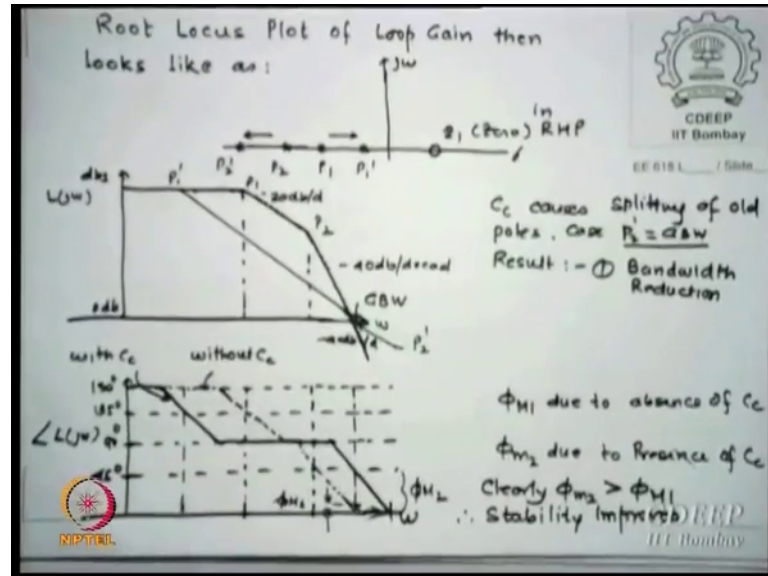 Root Locus Plot of Loop Gain then
looks like as:
jω
z1 (Zero) in RHP
P2' P2 P1 P1'
CDEEP
IIT Bombay
EE 618 L ___ / Slide
dbs
L(jω)
P1' P1 -20db/d
P2
-40db/decad
GBW
0db
ω
P2'
Cc causes splitting of old
poles. Case P2' = GBW
Result :- ① Bandwidth
Reduction
with Cc without Cc
180°
135°
∠L(jω) 90°
45°
ΦM1
ΦM2
ω
ΦM1 due to absence of Cc
Φm2 due to Presence of Cc
Clearly Φm2 > ΦM1
∴ Stability Improves
NPTEL
CDEEP
IIT Bombay